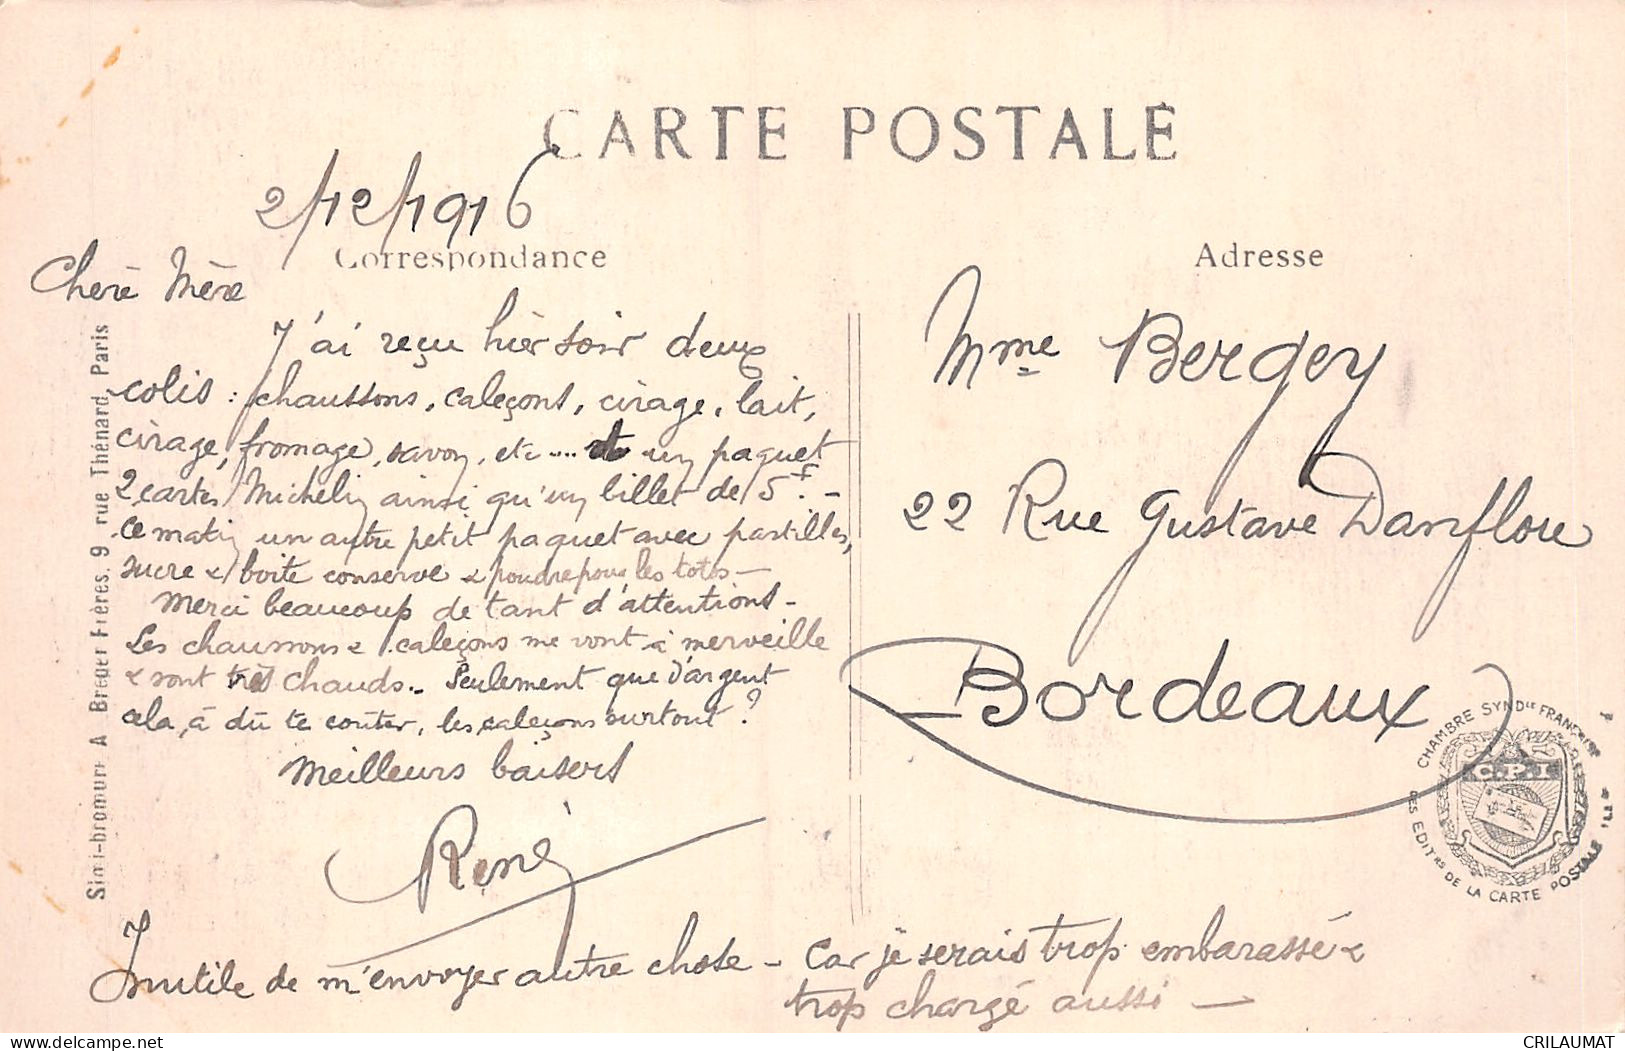 CARTE POSTALE
2/12/1916
Correspondance
Adresse
Chère Mère
J'ai reçu hier soir deux
colis : chaussons, caleçons, cirage, lait,
cirage, fromage, savon, etc .... et un paquet
2 cartes Michelin ainsi qu'un billet de 5f. -
Ce matin un autre petit paquet avec pastilles,
sucre & boite conserve & poudre pour les totos -
Merci beaucoup de tant d'attentions -
Les chaussons & caleçons me vont à merveille
& sont très chauds.. Seulement que d'argent
cela, a dû te coûter, les caleçons surtout ?
Meilleurs baisers
René
Inutile de m'envoyer autre chose - Car je serais trop embarassé &
trop chargé aussi -
Mme Bergey
22 Rue Gustave Danflou
Bordeaux
Simi-bromure A. Breger Frères, 9 rue Thénard, Paris
CHAMBRE SYNDle FRANÇAISE
DES EDITrs DE LA CARTE POSTALE ILLée
C.P.I
delcampe.net
CRILAUMAT